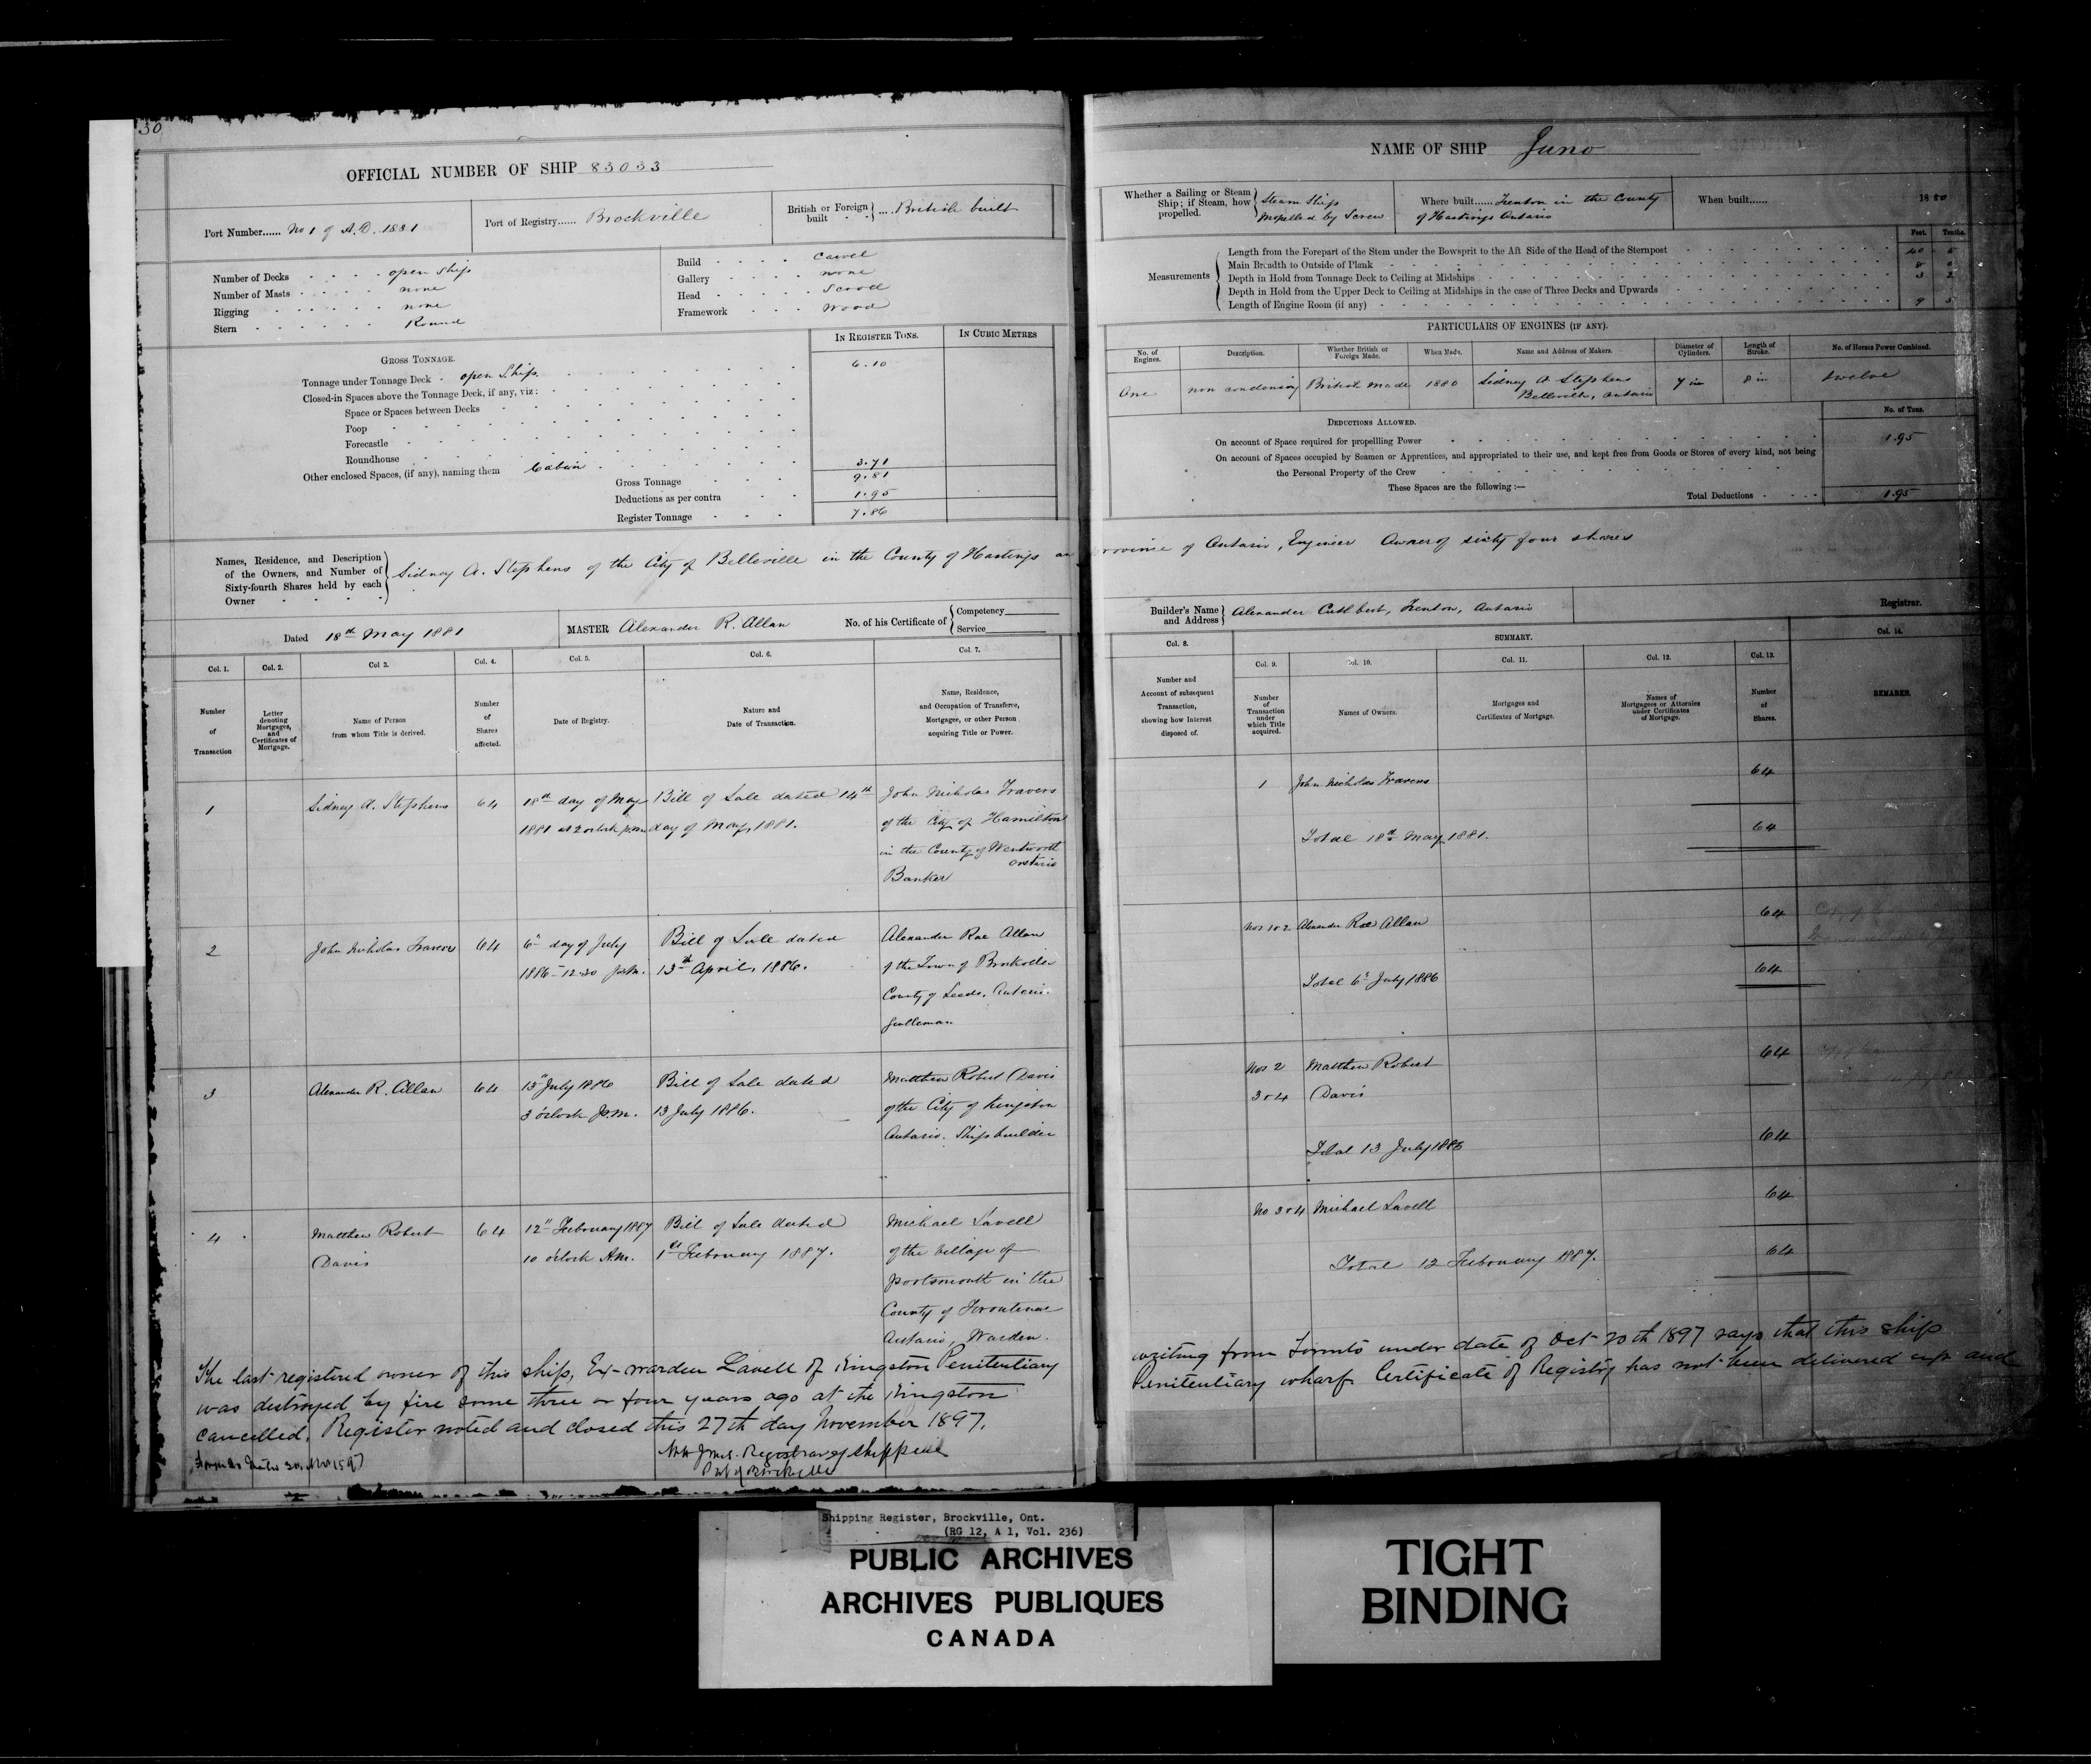 30
OFFICIAL NUMBER OF SHIP 83033
Port Number...... No 1 of A.D. 1881
Port of Registry...... Brockville
British or Foreign built .... British built
Number of Decks open Ship
Number of Masts none
Rigging none
Stern Round
Build Carvel
Gallery none
Head Scroll
Framework Wood
IN REGISTER TONS.
IN CUBIC METRES
GROSS TONNAGE.
Tonnage under Tonnage Deck open Ship 6.10
Closed-in Spaces above the Tonnage Deck, if any, viz:
Space or Spaces between Decks
Poop
Forecastle
Roundhouse
Other enclosed Spaces, (if any), naming them Cabin 3.71
Gross Tonnage 9.81
Deductions as per contra 1.95
Register Tonnage 7.86
Names, Residence, and Description
of the Owners, and Number of
Sixty-fourth Shares held by each
Owner
Sidney A. Stephens of the City of Belleville in the County of Hastings an
Dated 18th May 1881
MASTER Alexander R. Allan
No. of his Certificate of Competency
Service
Col. 1.
Col. 2.
Col 3.
Col. 4.
Col. 5.
Col. 6.
Col. 7.
Number
of
Transaction
Letter
denoting
Mortgages,
and
Certificates of
Mortgage.
Name of Person
from whom Title is derived.
Number
of
Shares
affected.
Date of Registry.
Nature and
Date of Transaction.
Name, Residence,
and Occupation of Transferee,
Mortgagee, or other Person
acquiring Title or Power.
1
Sidney A. Stephens
64
18th day of May
1881 at 2 oclock p.m.
Bill of Sale dated 14th
day of May, 1881.
John Nicholas Travers
of the City of Hamilton
in the County of Wentworth
Ontario
Banker
2
John Nicholas Travers
64
6th day of July
1886 - 12.30 p.m.
Bill of Sale dated
13th April, 1886.
Alexander Rae Allan
of the Town of Brockville
County of Leeds, Ontario.
Gentleman
3
Alexander R. Allan
64
15th July 1886
3 o'clock p.m.
Bill of Sale dated
13 July 1886.
Matthew Robert Davis
of the City of Kingston
Ontario. Shipbuilder
4
Matthew Robert
Davis
64
12th February 1887
10 o'clock A.M.
Bill of Sale dated
1st February 1887.
Michael Lavell
of the village of
portsmouth in the
County of Frontenac
Ontario, Warden.
The last registered owner of this ship, Ex-warden Lavell of Kingston Penitentiary
was destroyed by fire some three or four years ago at the Kingston
cancelled. Register noted and closed this 27th day November 1897.
Registrar of Shipping
Port of Brockville
NAME OF SHIP Juno
Whether a Sailing or Steam
Ship; if Steam, how
propelled.
Steam Ship
Propelled by Screw
Where built...... Trenton in the County
of Hastings Ontario
When built...... 1880
Feet. Tenths.
Measurements
Length from the Forepart of the Stem under the Bowsprit to the Aft Side of the Head of the Sternpost 40 5
Main Breadth to Outside of Plank 8
Depth in Hold from Tonnage Deck to Ceiling at Midships 3 2
Depth in Hold from the Upper Deck to Ceiling at Midships in the case of Three Decks and Upwards
Length of Engine Room (if any) 9 5
PARTICULARS OF ENGINES (IF ANY).
No. of
Engines.
Description.
Whether British or
Foreign Made.
When Made.
Name and Address of Makers.
Diameter of
Cylinders.
Length of
Stroke.
No. of Horses Power Combined.
One
non condensing
British made
1880
Sidney A Stephens
Belleville, Ontario
7 in
8 in
twelve
DEDUCTIONS ALLOWED.
No. of Tons.
On account of Space required for propellling Power 1.95
On account of Spaces occupied by Seamen or Apprentices, and appropriated to their use, and kept free from Goods or Stores of every kind, not being
the Personal Property of the Crew
These Spaces are the following :—
Total Deductions 1.95
Province of Ontario, Engineer Owner of sixty four shares
Builder's Name
and Address
Alexander Cuthbert, Trenton, Ontario
Registrar.
Col. 8.
SUMMARY.
Col. 14.
Col. 9.
Col. 10.
Col. 11.
Col. 12.
Col. 13.
Number and
Account of subsequent
Transaction,
showing how Interest
disposed of.
Number
of
Transaction
under
which Title
acquired.
Names of Owners.
Mortgages and
Certificates of Mortgage.
Names of
Mortgagees or Attornies
under Certificates
of Mortgage.
Number
of
Shares.
REMARKS.
1
John Nicholas Travers
64
Total 18th May 1881.
64
Nos 1 & 2
Alexander Rae Allan
64
Total 6th July 1886
64
Nos 2
3 & 4
Matthew Robert
Davis
64
Total 13 July 1886
64
No 3 & 4
Michael Lavell
64
Total 12 February 1887.
64
writing from Toronto under date of Oct 20th 1897 says that this ship
Penitentiary wharf. Certificate of Registry has not been delivered up and
Shipping Register, Brockville, Ont.
(RG 12, A 1, Vol. 236)
PUBLIC ARCHIVES
ARCHIVES PUBLIQUES
CANADA
TIGHT
BINDING